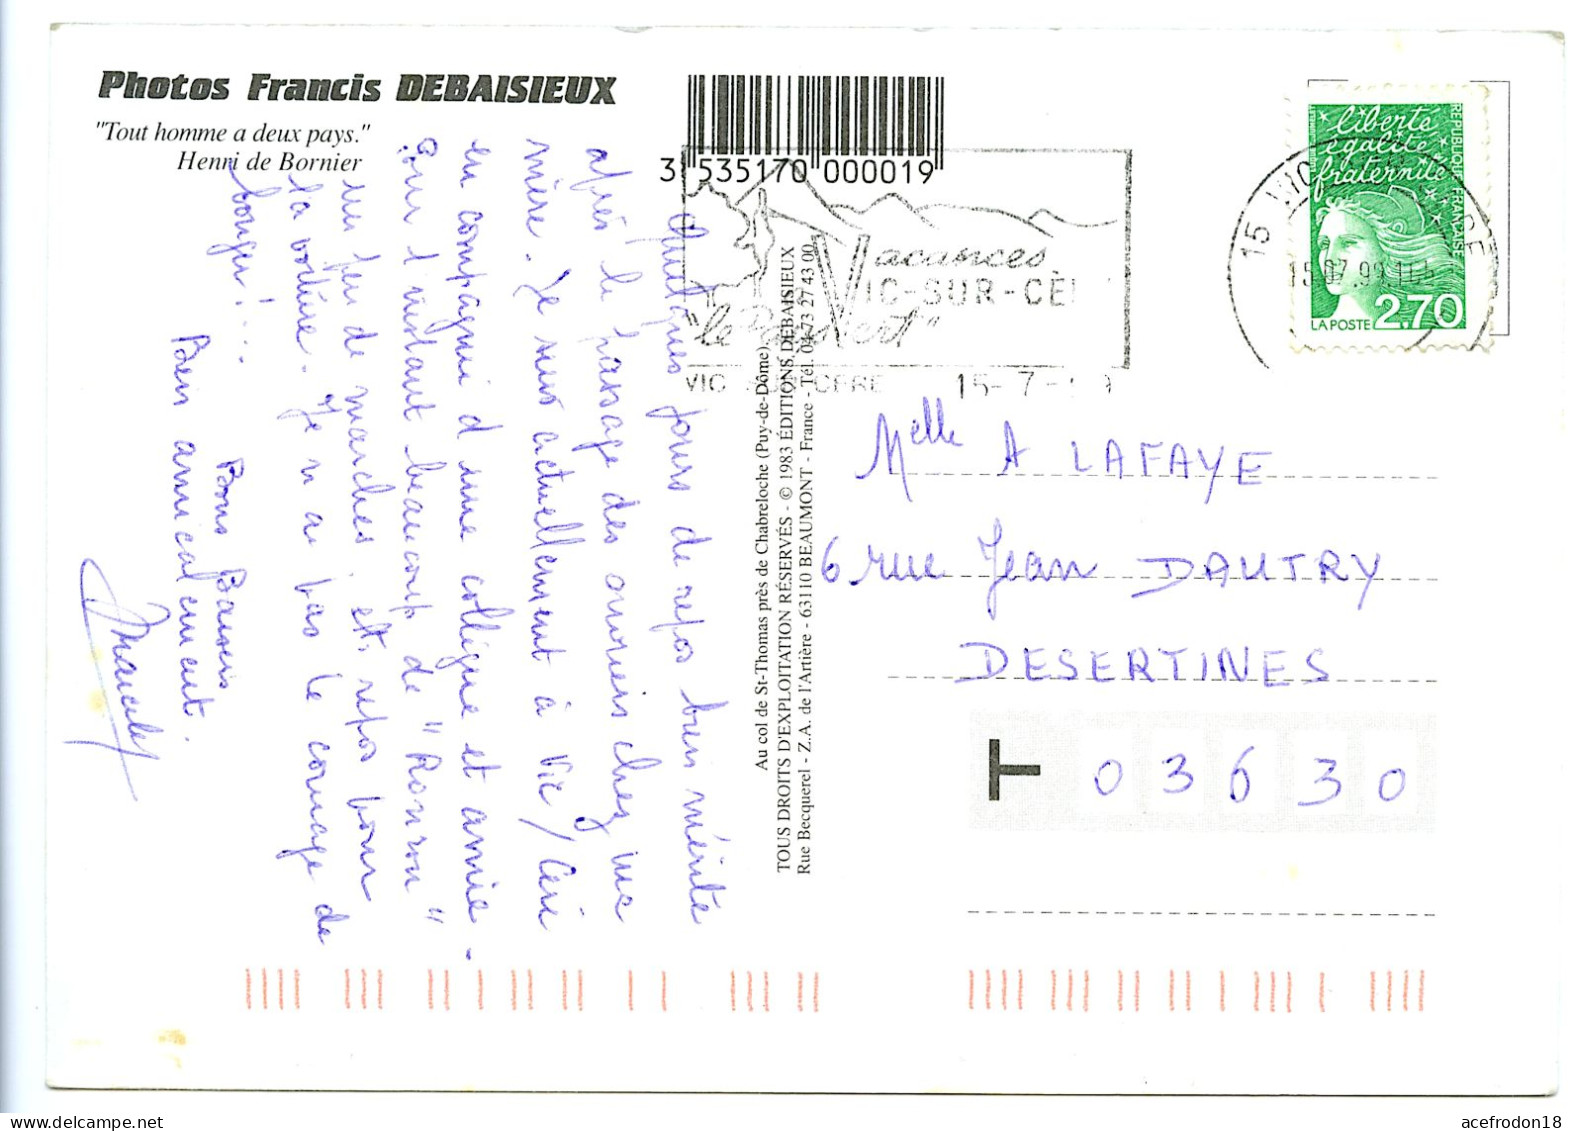 Photos Francis DEBAISIEUX
"Tout homme a deux pays."
Henri de Bornier
3 535170 000019
Quelques jours de repos bien mérité
après le passage des ouvriers chez ma
mère. Je suis actuellement à Vic/Cère
en compagnie d'une collègue et amie.
Pour l'instant beaucoup de "Ronron"
un peu de marches et repos pour
la voiture. Je n'ai pas le courage de
bouger!...
Bons Baisers
Bien amicalement.
Au col de St-Thomas près de Chabreloche (Puy-de-Dôme).
TOUS DROITS D'EXPLOITATION RÉSERVÉS - © 1983 ÉDITIONS DEBAISIEUX
Rue Becquerel - Z.A. de l'Artière - 63110 BEAUMONT - France - Tél. 04 73 27 43 00
Vacances
VIC-SUR-CÈ
"le
VIC
15-7-
15 VIC
15.07.99
liberté
égalité
fraternité
REPUBLIQUE FRANÇAISE
LA POSTE 2,70
Melle A LAFAYE
6 rue Jean DAUTRY
DESERTINES
03630
acefrodon18